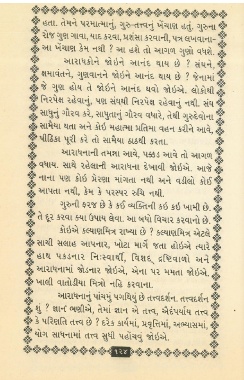 હતા. તેમને પરમાત્માનું, ગુરુ-તત્ત્વનું ખેંચાણ હતું. ગુરુના
રોજ ગુણ ગાવા, યાદ કરવા, પ્રશંસા કરવાની, પત્ર લખવાના-
આ ખેંચાણ કેમ નથી ? આ હશે તો આગળ ગુણો વધશે.
આરાધકોને જોઈને આનંદ થાય છે ? સંઘને,
ક્ષમાવંતને, ગુણવાનને જોઈને આનંદ થાય છે ? જેનામાં
જે ગુણ હોય તે જોઈને આનંદ થવો જોઈએ. લોકોથી
નિરપેક્ષ રહેવાનું, પણ સંઘથી નિરપેક્ષ રહેવાનું નથી. સંઘ
સાધુનું ગૌરવ કરે, સાધુતાનું ગૌરવ વધારે, તેથી ગુરુદેવોના
સામૈયા થતા અને કોઈ મહાત્મા પ્રતિમા વહન કરીને આવે,
પીઠિકા પૂરી કરે તો સામૈયા ઠાઠથી કરતા.
આરાધનાની તમન્ના આવે, પક્કડ આવે તો આગળ
વધાય. સાથે રહેલાની આરાધના દેખાવી જોઈએ. આજે
નાના પણ કોઈ પ્રેરણા માંગતા નથી અને વડીલો કોઈ
આપતા નથી, કેમ કે પરસ્પર રુચિ નથી.
ગુરુની ફરજ છે કે કઈ વ્યક્તિની કઈ કઈ ખામી છે.
તે દૂર કરવા ક્યા ઉપાય લેવા. આ બધો વિચાર કરવાનો છે.
કોઈએ કલ્યાણમિત્ર રાખ્યા છે ? કલ્યાણમિત્ર એટલે
સાચી સલાહ આપનાર, ખોટા માર્ગે જતા હોઈએ ત્યારે
હાથ પકડનાર નિઃસ્વાર્થી, વિશદ દ્રષ્ટિવાળો અને
આરાધનામાં જોડનાર જોઈએ, એના પર મમતા જોઈએ.
ખાલી વાતોડીયા મિત્રો નહિ કરવાના.
આરાધનાનું પાંચમું પગથિયું છે તત્ત્વદર્શન. તત્ત્વદર્શન
શું ? જ્ઞાન ભણીએ, તેમાં જ્ઞાન એ તત્ત્વ, ઐદંપર્યાય તત્ત્વ
કે પરિણતિ તત્ત્વ છે ? દરેક કાર્યમાં, પ્રવૃત્તિમાં, અભ્યાસમાં,
યોગ સાધનામાં તત્ત્વ સુધી પહોંચવું જોઈએ.
૧૨૪